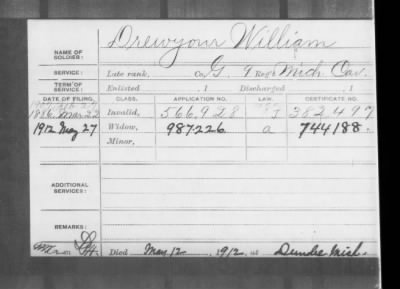 NAME OF SOLDIER: Drewyour William
SERVICE: Late rank, Co. G, 9 Reg't Mich. Cav.
TERM OF SERVICE: Enlisted , 1 Discharged , 1
DATE OF FILING. CLASS. APPLICATION NO. LAW. CERTIFICATE NO.
1886 Mar. 22 Invalid, 566,928 J 382,497
1912 May 27 Widow, 987226 a 744188.
Minor,
ADDITIONAL SERVICES:
REMARKS:
Died Mar. 12, 1912, at Dundee Mich.